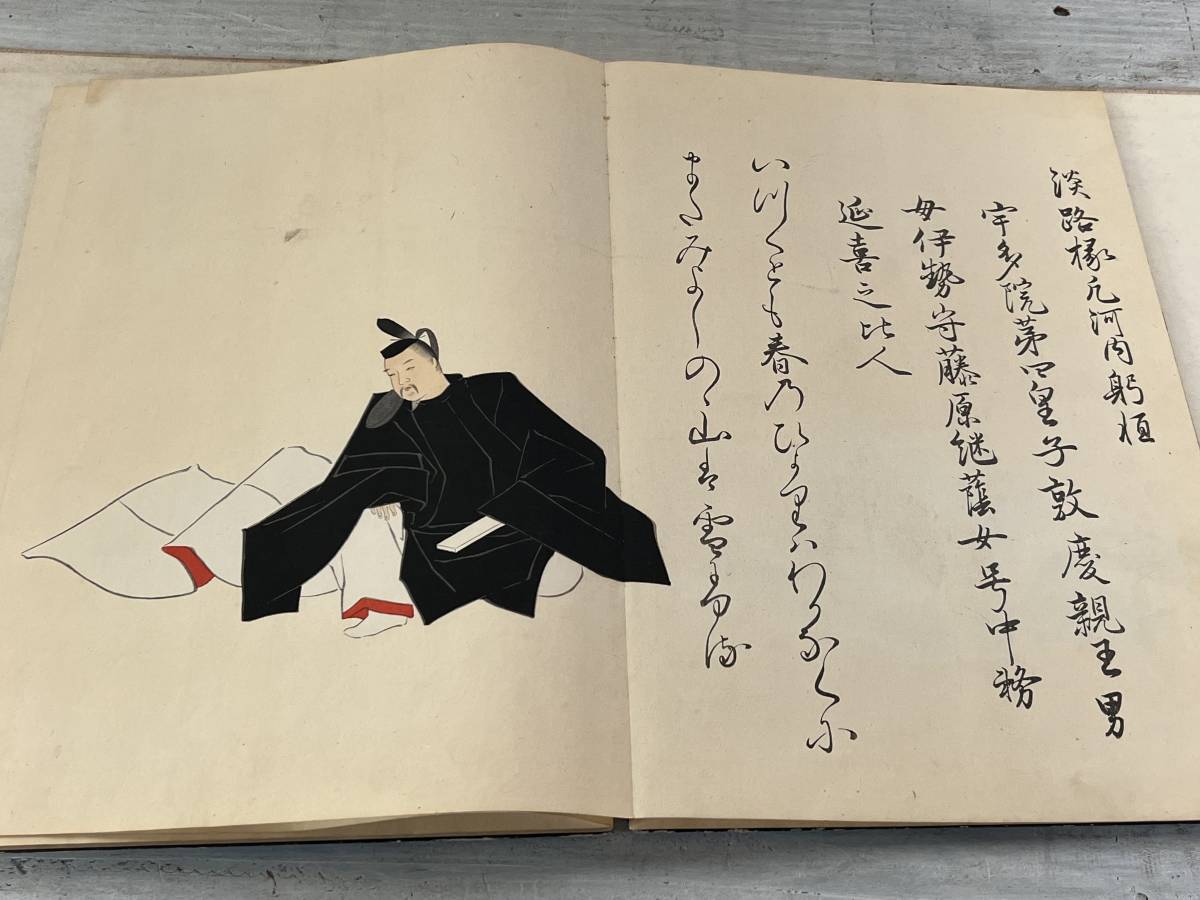 淡路掾凡河内躬恒
宇多院第四皇子敦慶親王男
母伊勢守藤原継蔭女号中務
延喜之比人
いつくとも春乃ひかりハわかなくに
またみよしのゝ山は雪ふる